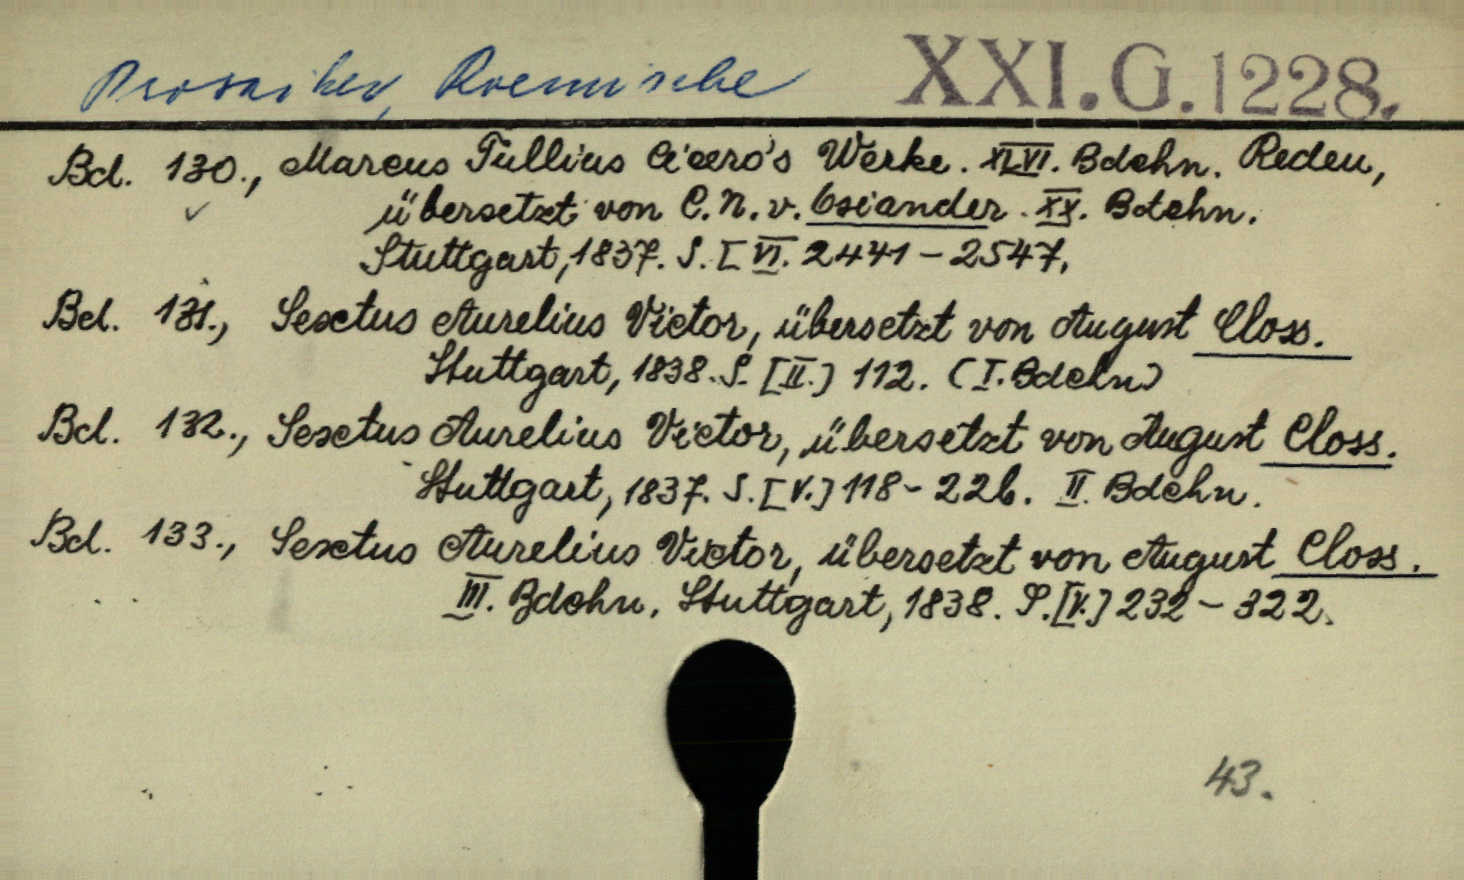 Prosaiker, Roemische XXI.G.1228.
Bd. 130., Marcus Tullius Cicero's Werke. XLVI. Bdchn. Reden,
übersetzt von C.N.v. Osiander. XX. Bdchn.
Stuttgart, 1837. S. [VI. 2441-2547.
Bd. 131., Sextus Aurelius Victor, übersetzt von August Closs.
Stuttgart, 1838. S. [II.] 112. (I. Bdchn)
Bd. 132., Sextus Aurelius Victor, übersetzt von August Closs.
Stuttgart, 1837. S. [V.] 118-226. II. Bdchn.
Bd. 133., Sextus Aurelius Victor, übersetzt von August Closs.
III. Bdchn. Stuttgart, 1838. S. [V.] 232-322.
43.